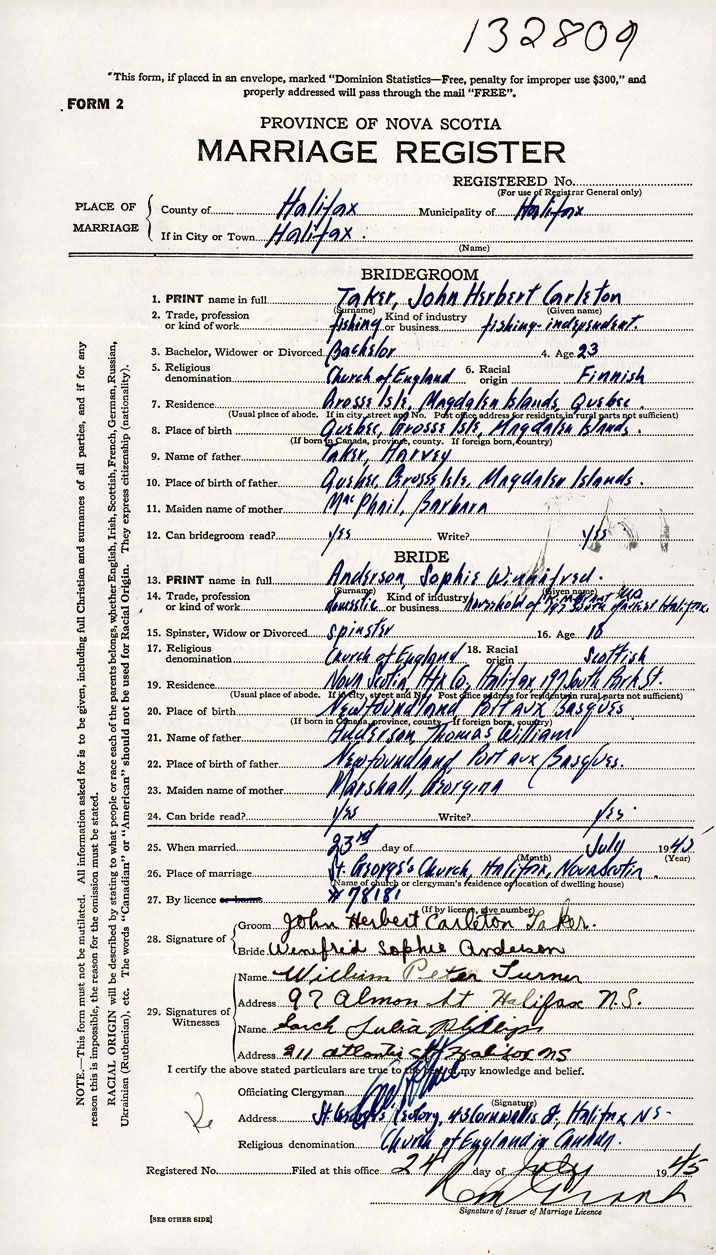 132809
"This form, if placed in an envelope, marked "Dominion Statistics—Free, penalty for improper use $300," and
properly addressed will pass through the mail "FREE".
FORM 2
PROVINCE OF NOVA SCOTIA
MARRIAGE REGISTER
REGISTERED No.
(For use of Registrar General only)
PLACE OF MARRIAGE
County of Halifax Municipality of Halifax
If in City or Town Halifax.
(Name)
BRIDEGROOM
1. PRINT name in full Taker, John Herbert Carleton
(Surname) (Given name)
2. Trade, profession or kind of work fishing Kind of industry or business fishing-independent.
3. Bachelor, Widower or Divorced Bachelor 4. Age 23
5. Religious denomination Church of England 6. Racial origin Finnish
7. Residence Grosse Isle, Magdalen Islands, Quebec.
(Usual place of abode. If in city, street and No. Post office address for residents in rural parts not sufficient)
8. Place of birth Quebec, Grosse Isle, Magdalen Islands.
(If born in Canada, province, county. If foreign born, country)
9. Name of father Taker, Harvey
10. Place of birth of father Quebec, Grosse Isle, Magdalen Islands.
11. Maiden name of mother MacPhail, Barbara
12. Can bridegroom read? yes Write? yes
BRIDE
13. PRINT name in full Anderson, Sophie Winnifred.
(Surname) (Given name)
14. Trade, profession or kind of work domestic Kind of industry or business household of 197 South Park St Halifax.
15. Spinster, Widow or Divorced spinster 16. Age 18
17. Religious denomination Church of England 18. Racial origin Scottish
19. Residence Nova Scotia, Hfx Co., Halifax 197 South Park St.
(Usual place of abode. If in city, street and No. Post office address for residents in rural parts not sufficient)
20. Place of birth Newfoundland Port aux Basques
(If born in Canada, province, county. If foreign born, country)
21. Name of father Anderson, Thomas William
22. Place of birth of father Newfoundland Port aux Basques.
23. Maiden name of mother Marshall, Georgina
24. Can bride read? yes Write? yes.
25. When married 23rd day of July 1945
(Month) (Year)
26. Place of marriage St. George's Church, Halifax, Nova Scotia.
(Name of church or clergyman's residence or location of dwelling house)
27. By licence or banns # 78181
(If by licence, give number)
28. Signature of
Groom John Herbert Carleton Taker.
Bride Winifred Sophie Anderson
29. Signatures of Witnesses
Name William Peter Turner
Address 97 Almon St Halifax N.S.
Name Julia Phillips
Address 211 Atlantic St Halifax NS
I certify the above stated particulars are true to the best of my knowledge and belief.
Officiating Clergyman
(Signature)
Address St Georges Rectory, 43 Cornwallis St, Halifax NS-
Religious denomination Church of England in Canada.
Registered No. Filed at this office 24 day of July 1945
Signature of Issuer of Marriage Licence
[SEE OTHER SIDE]
NOTE.—This form must not be mutilated. All information asked for is to be given, including full Christian and surnames of all parties, and if for any
reason this is impossible, the reason for the omission must be stated.
RACIAL ORIGIN will be described by stating to what people or race each of the parents belongs, whether English, Irish, Scottish, French, German, Russian,
Ukrainian (Ruthenian), etc. The words "Canadian" or "American" should not be used for Racial Origin. They express citizenship (nationality).